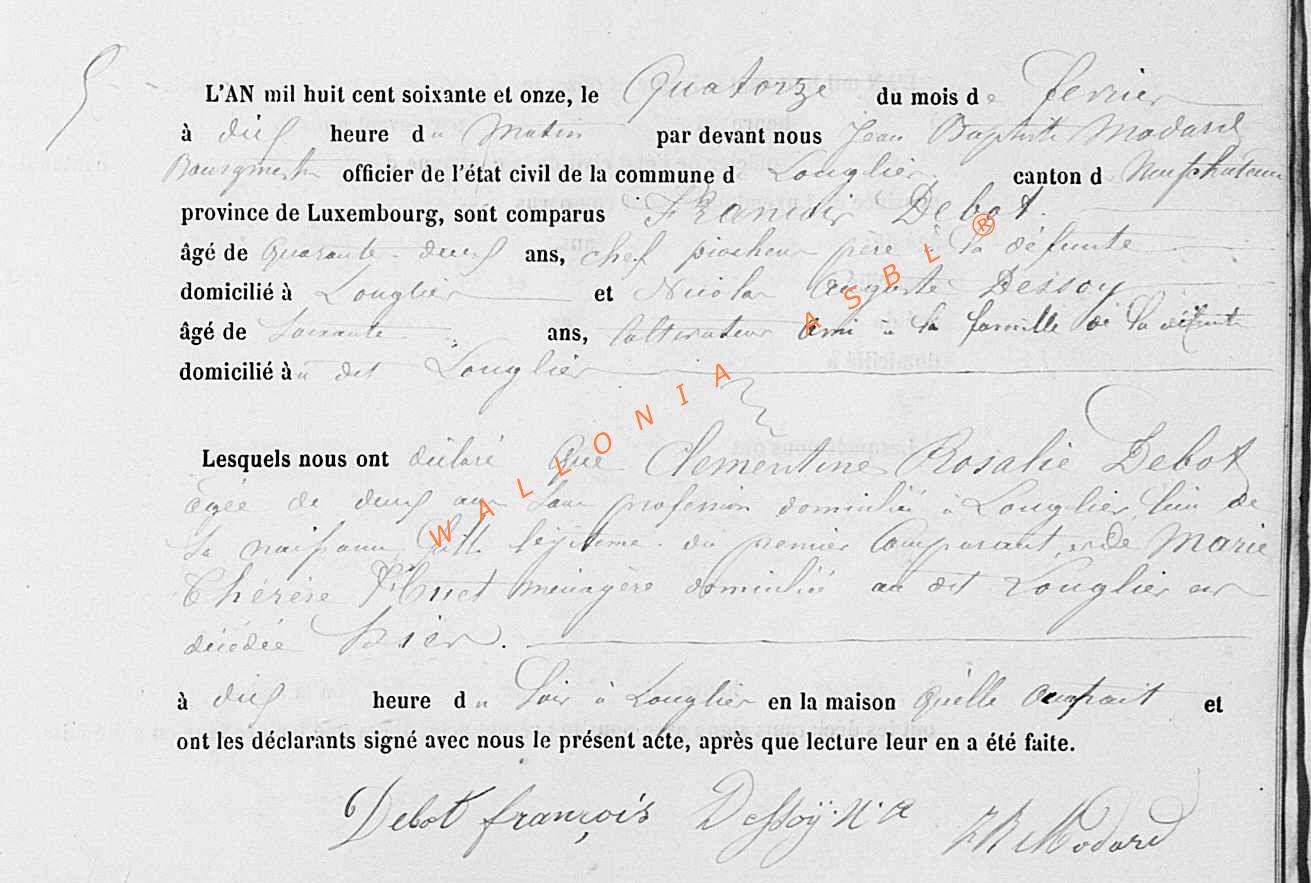 5
L'AN mil huit cent soixante et onze, le Quatorze du mois de fevrier
à dix heure du Matin par devant nous Jean Baptiste Modard
Bourgmestre officier de l'état civil de la commune d Longlier canton d Neufchateau
province de Luxembourg, sont comparus François Debot
âgé de quarante-deux ans, chef piocheur père à la défunte
domicilié à Longlier et Nicolas Auguste Dessoy
âgé de soixante ans, Cultivateur Ami à la famille de la défunte
domicilié à u dit Longlier
Lesquels nous ont déclaré que Clementine Rosalie Debot
agée de deux ans sans profession domiciliée à Longlier lieu de
sa naissance fille légitime du premier Comparant, et de Marie
Thérèse Huet menagère domiciliée au dit Longlier est
décédée hier.
à dix heure du soir à Longlier en la maison qu'elle occupait et
ont les déclarants signé avec nous le présent acte, après que lecture leur en a été faite.
Debot françois Dessoÿ. N. A JB Modard
WALLONIA ASBL ®